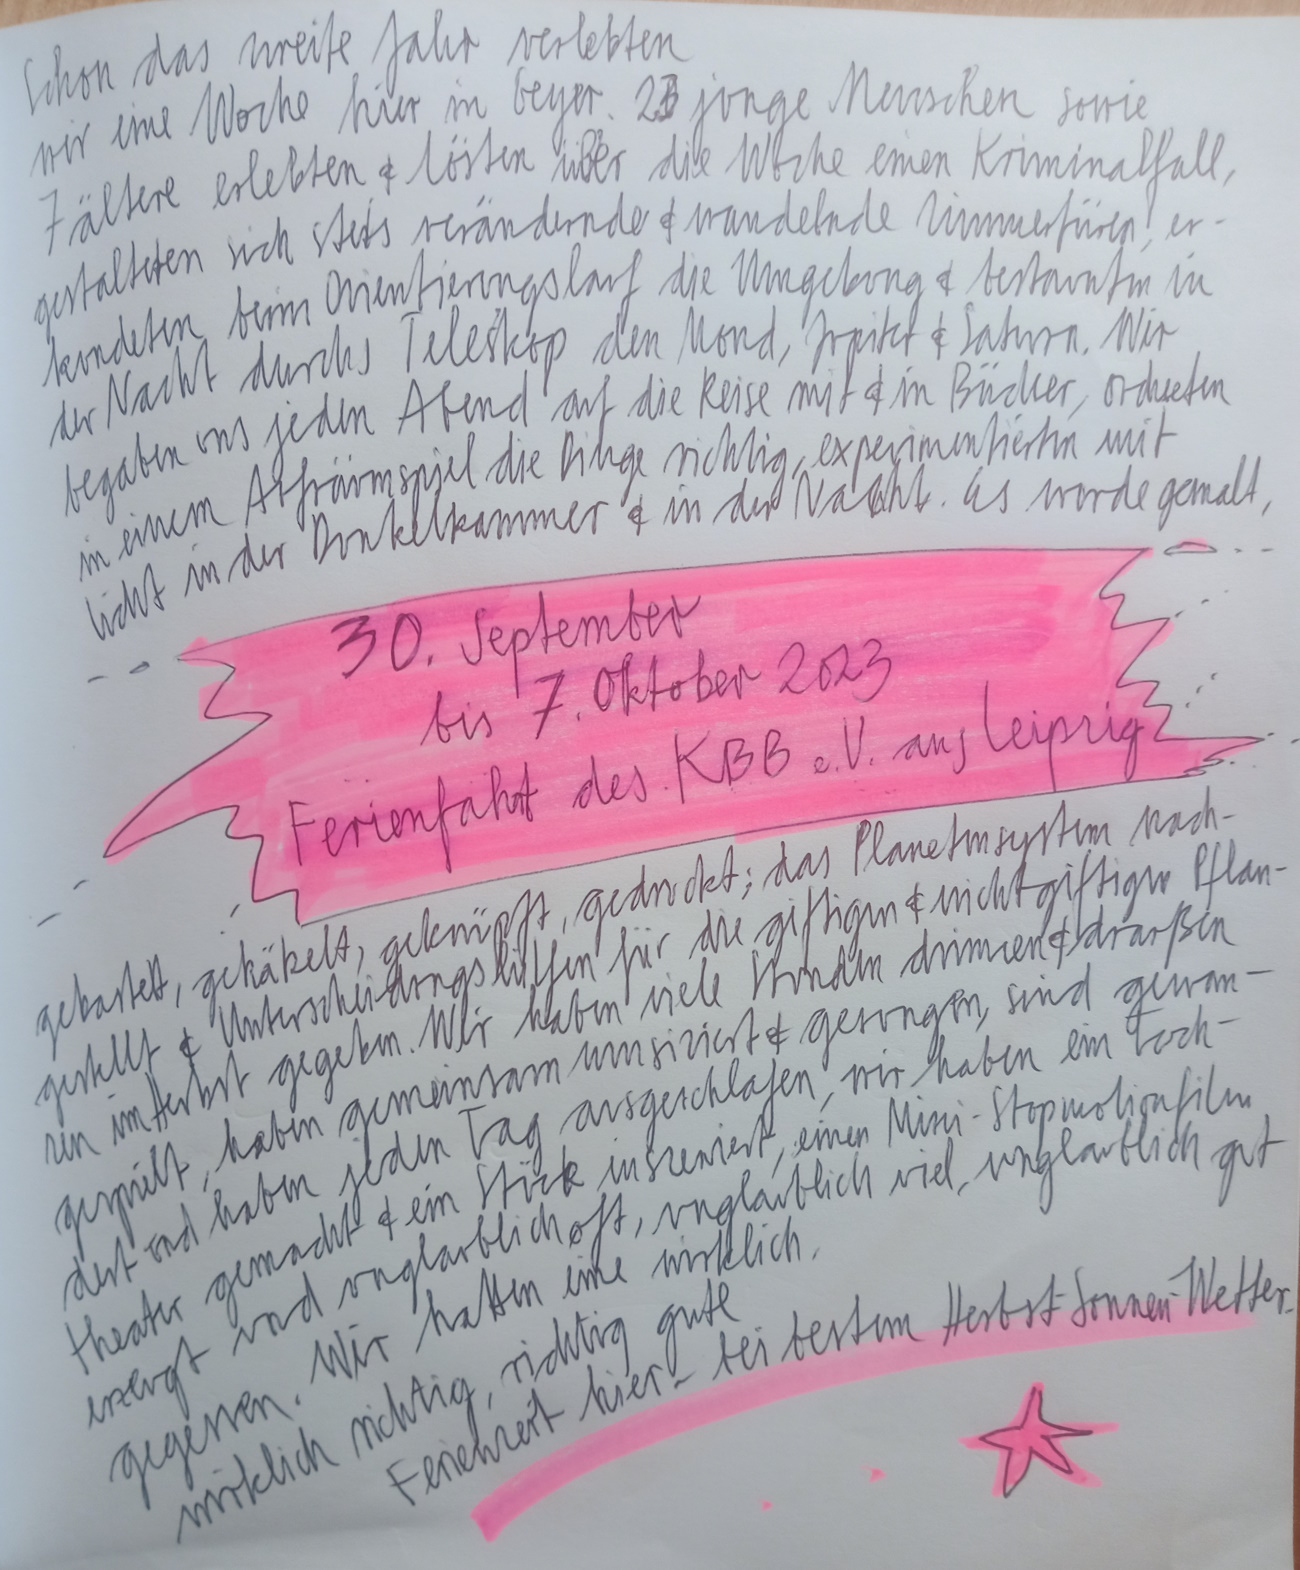 Schon das zweite Jahr verlebten
wir eine Woche hier in Geyer. 23 junge Menschen sowie
7 ältere erlebten & lösten über die Woche einen Kriminalfall,
gestalteten sich stets verändernde & wandelnde Zimmertüren, er-
kundeten beim Orientierungslauf die Umgebung & bestaunten in
der Nacht durchs Teleskop den Mond, Jupiter & Saturn. Wir
begaben uns jeden Abend auf die Reise mit & in Bücher, ordneten
in einem Aufräumspiel die Dinge richtig, experimentierten mit
Licht in der Dunkelkammer & in der Nacht. Es wurde gemalt,
30. September
bis 7. Oktober 2023
Ferienfahrt des KBB e.V. aus Leipzig
gebastelt, gehäkelt, geknüpft, gedruckt; das Planetensystem nach-
gestellt & Unterscheidungshilfen für die giftigen & nicht giftigen Pflan-
zen im Herbst gegeben. Wir haben viele Stunden drinnen & draußen
gespielt, haben gemeinsam musiziert & gesungen, sind gewan-
dert und haben jeden Tag ausgeschlafen, wir haben ein Tuch-
theater gemacht & ein Stück inszeniert, einen Mini-Stopmotionfilm
erzeugt und unglaublich oft, unglaublich viel, unglaublich gut
gegessen. Wir hatten eine wirklich,
wirklich richtig, richtig gute
Ferienzeit hier - bei bestem Herbst-Sonnen-Wetter.